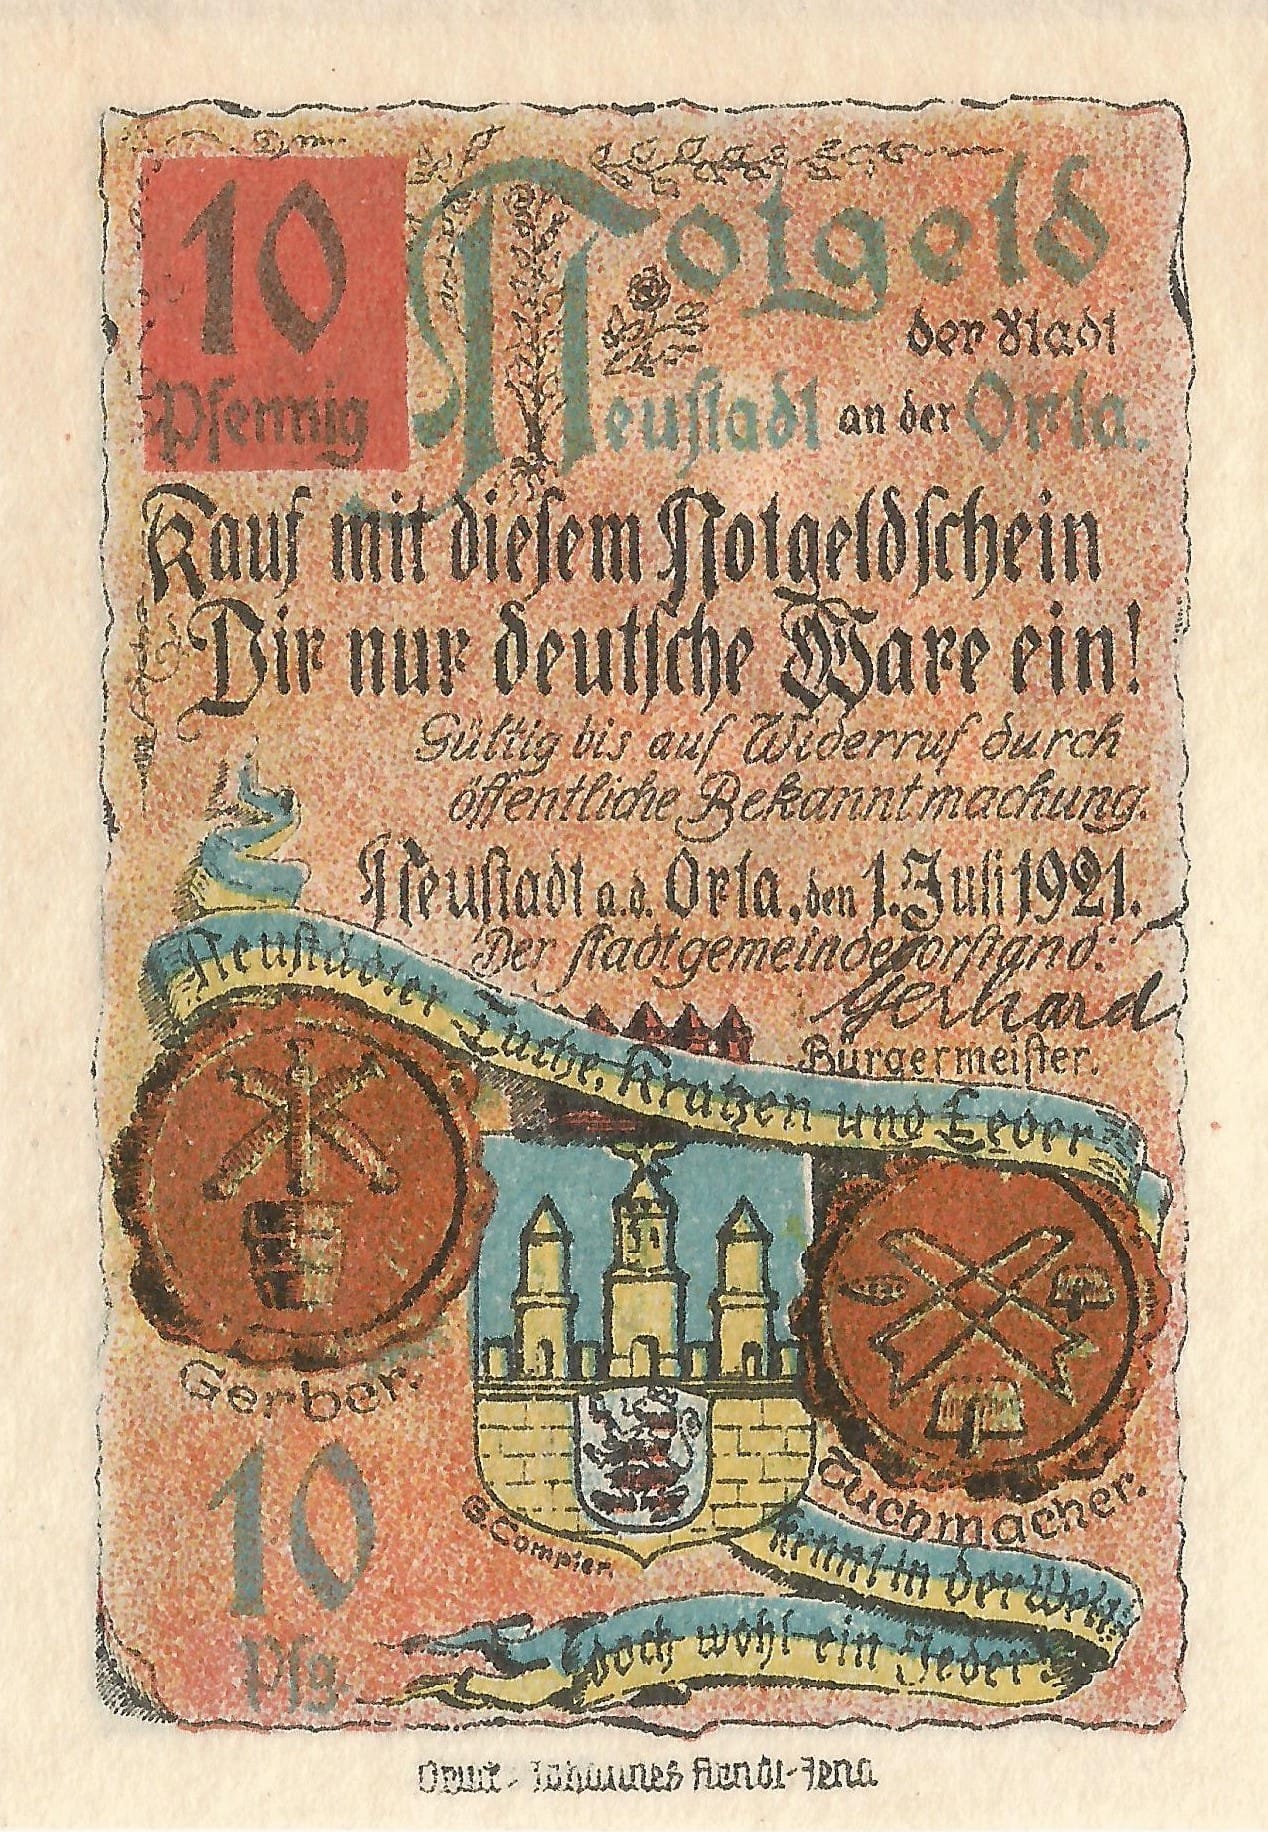 10
Pfennig
Notgeld
der Stadt
Neustadt an der Orla.
Kauf mit diesem Notgeldschein
Dir nur deutsche Ware ein!
Gültig bis auf Widerruf durch
öffentliche Bekanntmachung.
Neustadt a.d. Orla, den 1. Juli 1921.
Der Stadtgemeindevorstand:
Gerhard
Bürgermeister.
Neustädter Tuche, Kratzen und Leder
Gerber.
Tuchmacher.
G. Compter.
kennt in der Welt
doch wohl ein Jeder
10
Pfg.
Druck - Johannes Arndt-Jena